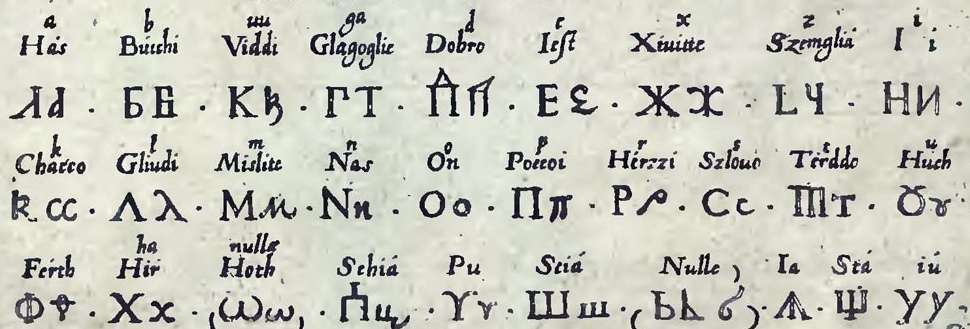 a b uu ga d e x z i
Has Bucchi Viddi Glagoglie Dobro Iest Xiuitte Szemglia I i
Ⰰd · Б Б · К ꙗ · Г Т · Д П · Е Є · Ж Ж · L Ч · Н И ·
k l m n o p r s t u
Chacco Gliudi Mislite Nas On Poccoi Herzzi Szlouo Terddo Huch
k cc · Λ λ · М м · N n · О о · П п · Р р · С с · Ш т · Ȣ ȣ ·
ha nulla
Ferth Hir Hoth Schiá Pu Sciá Nulle Ia Stá iú
Ф ф · Х х · (Ѡ ѡ) · Ц ц · Ү ү · Ш ш · (Ь Ѣ б) · Ѧ · Щ · У у ·